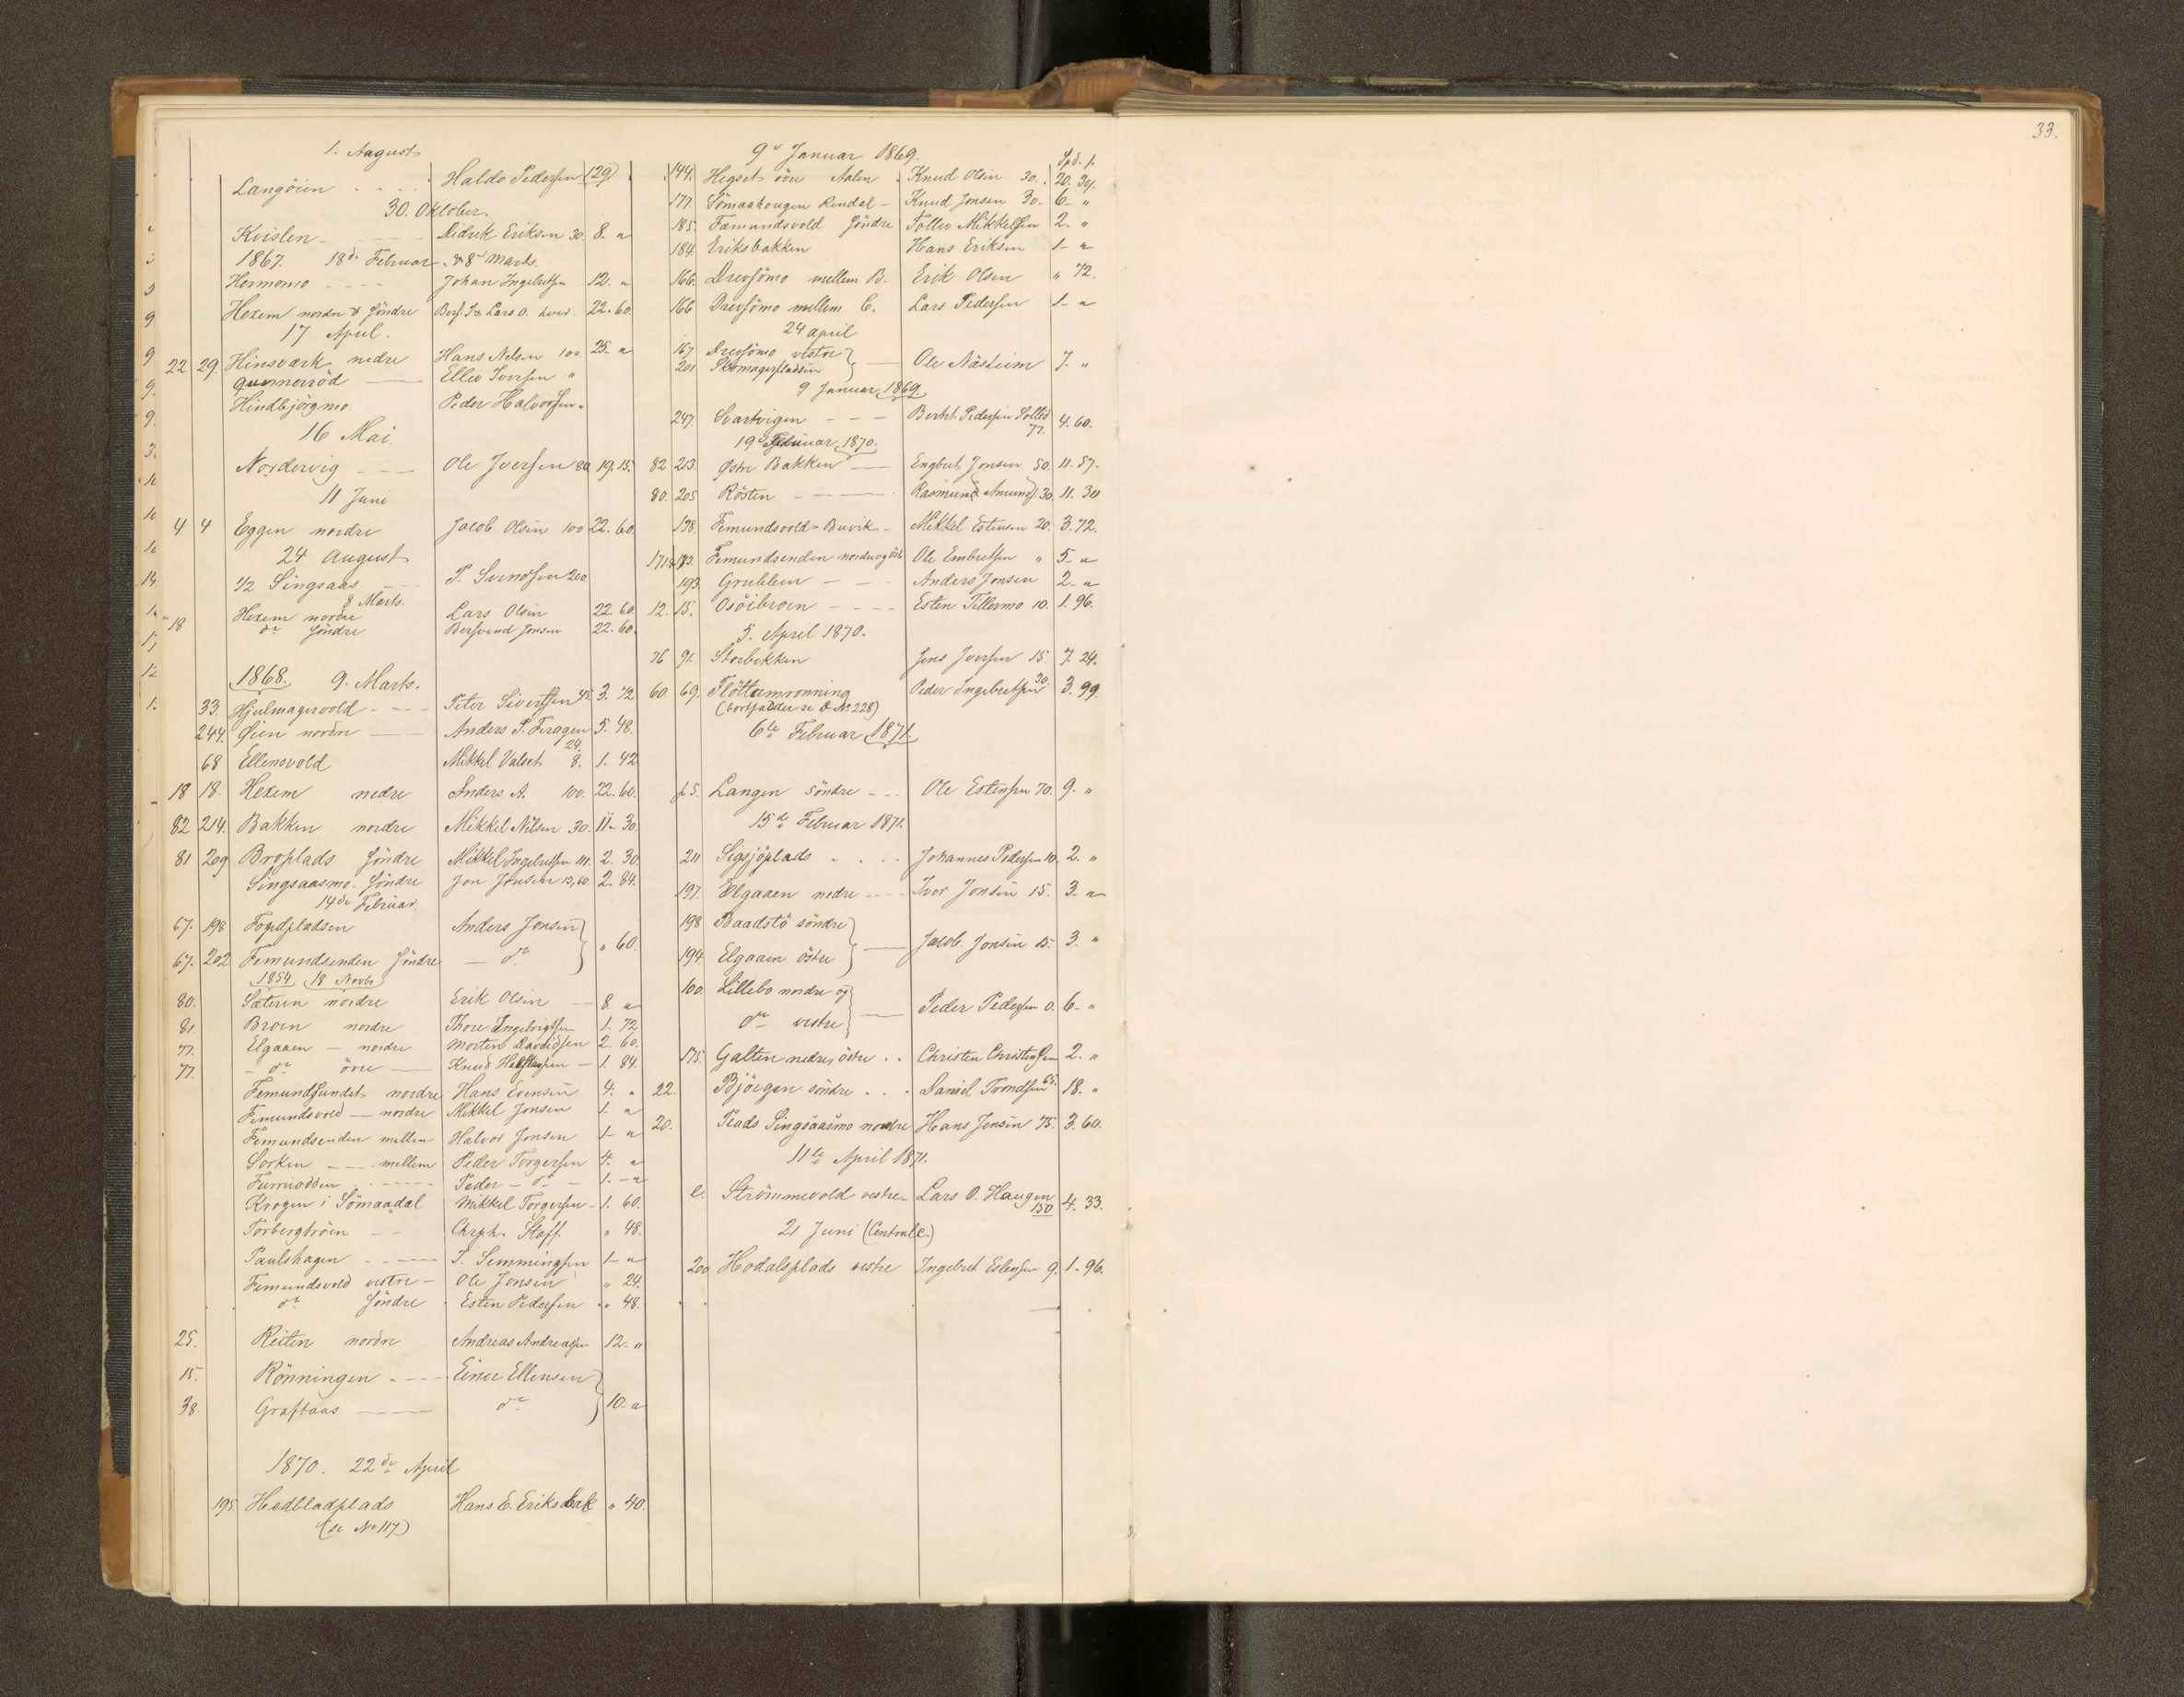 33.
1. August
Langöien - - - - Haldo Pedersen (29)
30. Oktober.
Kvislen - - Didrik Eriksen 30 8. "
1867. 18de Februar & 8de Marts.
Hermomo - - - - Johan Ingebretsen 12. "
Hexem nordre & söndre 22. 60.
17 April.
22 29. Hinsværk nedre Hans Nelsen 100 25. "
Ellev Iversen "
Hindbjörgmo. Peder Halvorsen "
16 Mai.
Nordervig - - - Ole Iversen 80 19. 15.
11 Juni
4 4 Eggen nordre Jacob Olsen 100 22. 60.
24 August
1/2 Singsaas - - - P. Svendsen 200
8 Marts.
18 Hexem nordre Lars Olsen 22. 60.
do söndre Bersvend Jonsen 22. 60.
1868. 9. Marts.
33. Hjulmagervold - - - Peter Sivertsen 3. 72
244. Øien nordre - Anders P. Feragen 5. 48.
24.
68 Ellensvold Mikkel Valset 8. 1. 42
18 18. Hexem nedre Anders A. 100. 22. 60.
82 214. Bakken nordre Mikkel Nilsen 30. 11. 30.
81 209 Broplads söndre Mikkel Ingebretsen 2. 30.
Singsaasmo. söndre Jon Jonsen 15,60. 2. 84.
14de Februar.
67. 198 Anders Jonsen
67. 202 Femundsenden söndre - do " 60.
1854 18 Novbr
80. Sæteren nordre Erik Olsen - - 8 "
81. Broen nordre Thore Ingebrigtsen 1. 72
77. Elgaaen - nordre Morten Davidsen 2. 60.
77. - do övre - Knud - 1. 84.
Femundsundet nordre Hans Evensen 4. "
Femundsvold - nordre Mikkel Jonsen 1. "
Femundsenden mellem Halvor Jonsen 1 - "
Sorken - - - mellem Peder Torgersen 4. "
Furruodden - - - - - Peder - do - 1. - "
Krogen i Sömaadal Mikkel Torgersen - 1. 60.
Torbergtröen - - Chrph. Staff. " 48.
Paulshagen - - - P. Semmingsen 1 - "
Femundsvold vestre - Ole Jonsen " 24.
do söndre Esten Pedersen " 48.
25. Reiten nordre Andreas Andreasen 12. "
15. Rönningen - - - - Einer Ellensen
38. Graftaas - - - do 10. "
1870. 22de April
195. Hedbladplads Hans E. Eriksbak " 40.
(se No 117)
9de Januar 1869. Spd. s.
144. Hegset övre Aalen Knud Olsen 30. 20. 30.
177. Sömaahougen Rendal - Knud Jonsen 30. 6 - "
185. Fæmundsvold söndre Tollev Mikkelsen 2. "
184. Eriksbakken Hans Eriksen 1 - "
166. Drevsömo mellem B. Erik Olsen " 72.
166 Drevsömo mellem C. Lars Pedersen 1 - "
24 april
167 Drevsömo vestre
201 Skomagerpladsen - Ole Næsheim 7. "
9 Januar 1869.
247. Svartvigen - - - Bernt Pedersen 77. 4. 60.
19de Februar 1870.
82 213. Østre Bakken - Engbret Jonsen 50. 11. 57.
80. 205 Rösten - - - Rasmus Amunds. 30. 11. 30
178. Femundsvold - Buvik - Mikkel Estensen 20. 3. 72.
183. Femundsenden nordre og östre Ole Embretsen " 5 - "
193 Grubben - - - Anders Jonsen 2 - "
12. 15. Osöibroen - - - - Esten Tillermo 10. 1. 96.
5. April 1870.
76 91. Storbekken Jens Iversen 15. 7. 24.
60. 69. Flöttumrönning Peder Ingebretsen 30. 3. 99.
(bortfalder se D No 228)
6te Februar 1871.
Langen söndre - - Ole Estensen 70. 9. "
15de Februar 1871.
211 Sigsjöplads - - - - Johannes Pedersen 10. 2. "
197. Elgaaen nedre - - - - Ivor Jonsen 15. 3. "
198 Baadstö söndre
194 Elgaaen östre - Jacob Jonsen 15. 3. "
100. Lillebo nordre og
do vestre - Peder Pedersen 0. 6 - "
175. Galten nedre, östre . . Christen Christensen 2. "
22. Björgen söndre . . . Daniel Trondsen 65. 18. "
20. Plads Singsaasmo nordre Hans Jensen 75. 3. 60.
11te April 1871.
e. Strömmevold vestre - Lars O. Haugen 150 4. 33.
21 Juni (Central.)
200 Hodalsplads vestre Ingebret Eslensen 9. 1 - 96.